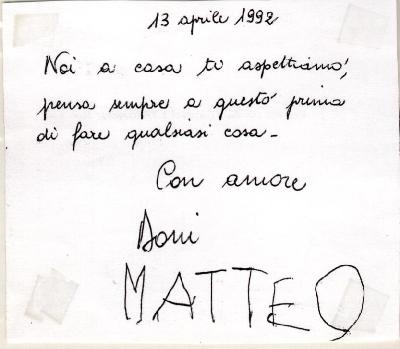 13 aprile 1992
Noi a casa ti aspettiamo,
pensa sempre a questo prima
di fare qualsiasi cosa -
Con amore
Doni
MATTEO